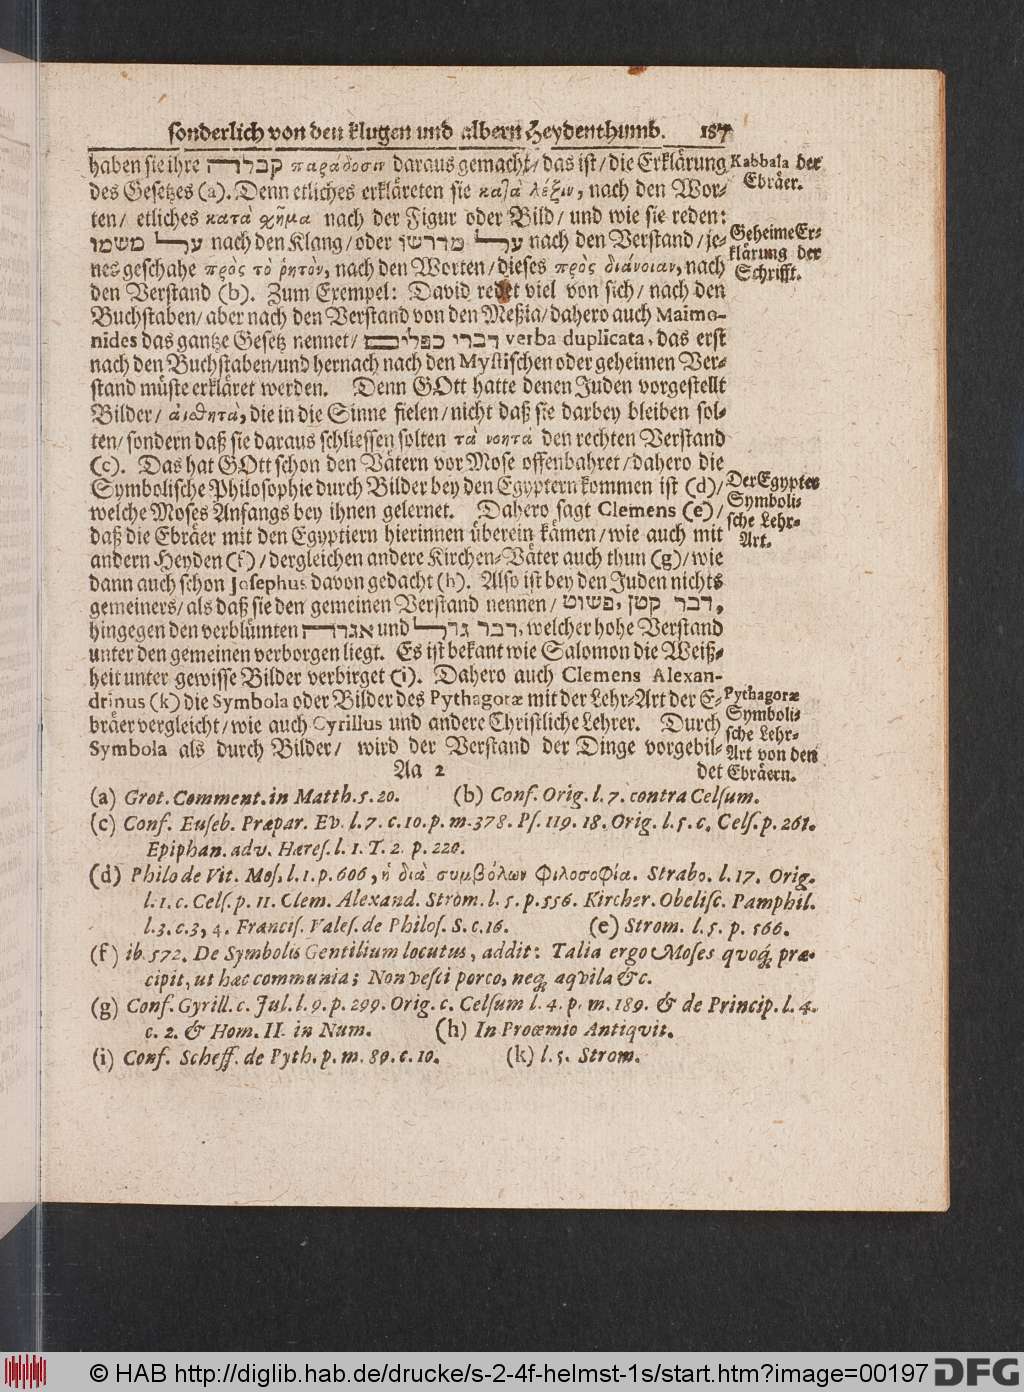 sonderlich von den klugen und albern Heydenthumb. 187
haben sie ihre קבלה παράδοσιν daraus gemacht/ das ist/ die Erklärung
Kabbala der
Ebräer.
des Gesetzes (a). Denn etliches erkläreten sie κατὰ λέξιν, nach den Wor-
ten/ etliches κατὰ χῆμα nach der Figur oder Bild/ und wie sie reden:
Geheime Er-
klärung der
Schrifft.
על משמו nach den Klang/ oder על מדרשו nach den Verstand/ je-
nes geschahe πρὸς τὸ ῥητὸν, nach den Worten/ dieses πρὸς διάνοιαν, nach
den Verstand (b). Zum Exempel: David redet viel von sich/ nach den
Buchstaben/ aber nach den Verstand von den Meßia/ dahero auch Maimo-
nides das gantze Gesetz nennet/ דברי כפלים verba duplicata, das erst
nach den Buchstaben/ und hernach nach den Mystischen oder geheimen Ver-
stand müste erkläret werden. Denn GOtt hatte denen Juden vorgestellt
Bilder/ αἰσθητὰ, die in die Sinne fielen/ nicht daß sie darbey bleiben sol-
ten/ sondern daß sie daraus schliessen solten τὰ νοητὰ den rechten Verstand
(c). Das hat GOtt schon den Vätern vor Mose offenbahret/ dahero die
Symbolische Philosophie durch Bilder bey den Egyptern kommen ist (d)/
Der Egypter
Symboli-
sche Lehr-
Art.
welche Moses Anfangs bey ihnen gelernet. Dahero sagt Clemens (e)/
daß die Ebräer mit den Egyptiern hierinnen überein kämen/ wie auch mit
andern Heyden (f)/ dergleichen andere Kirchen-Väter auch thun (g)/ wie
dann auch schon Josephus davon gedacht (h). Also ist bey den Juden nichts
gemeiners/ als daß sie den gemeinen Verstand nennen/ דבר קטן, פשוט,
hingegen den verblümten אגדה und דבר גדול, welcher hohe Verstand
unter den gemeinen verborgen liegt. Es ist bekant wie Salomon die Weiß-
heit unter gewisse Bilder verbirget (i). Dahero auch Clemens Alexan-
drinus (k) die Symbola oder Bilder des Pythagoræ mit der Lehr-Art der E-
Pythagoræ
Symboli-
sche Lehr-
Art von den
Ebräern.
bräer vergleicht/ wie auch Cyrillus und andere Christliche Lehrer. Durch
Symbola als durch Bilder/ wird der Verstand der Dinge vorgebil-
Aa 2 det
(a) Grot. Comment. in Matth. 5. 20. (b) Conf. Orig. l. 7. contra Celsum.
(c) Conf. Euseb. Præpar. Ev. l. 7. c. 10. p. m. 378. Ps. 119. 18. Orig. l. 5. c. Cels. p. 261.
Epiphan. adv. Hæres. l. 1. T. 2. p. 220.
(d) Philo de Vit. Mos. l. 1. p. 606, ἡ διὰ συμβόλων Φιλοσοφία. Strabo. l. 17. Orig.
l. 1. c. Cels. p. 11. Clem. Alexand. Strom. l. 5. p. 556. Kircher. Obelisc. Pamphil.
l. 3. c. 3, 4. Francis. Vales. de Philos. S. c. 16. (e) Strom. l. 5. p. 566.
(f) ib. 572. De Symbolis Gentilium locutus, addit: Talia ergo Moses qvoq; præ-
cipit, ut hæc communia; Non vesci porco, neq; aqvila &c.
(g) Conf. Gyrill. c. Jul. l. 9. p. 299. Orig. c. Celsum l. 4. p. m. 189. & de Princip. l. 4.
c. 2. & Hom. II. in Num. (h) In Proœmio Antiqvit.
(i) Conf. Scheff. de Pyth. p. m. 89. c. 10. (k) l. 5. Strom.
© HAB http://diglib.hab.de/drucke/s-2-4f-helmst-1s/start.htm?image=00197 DFG